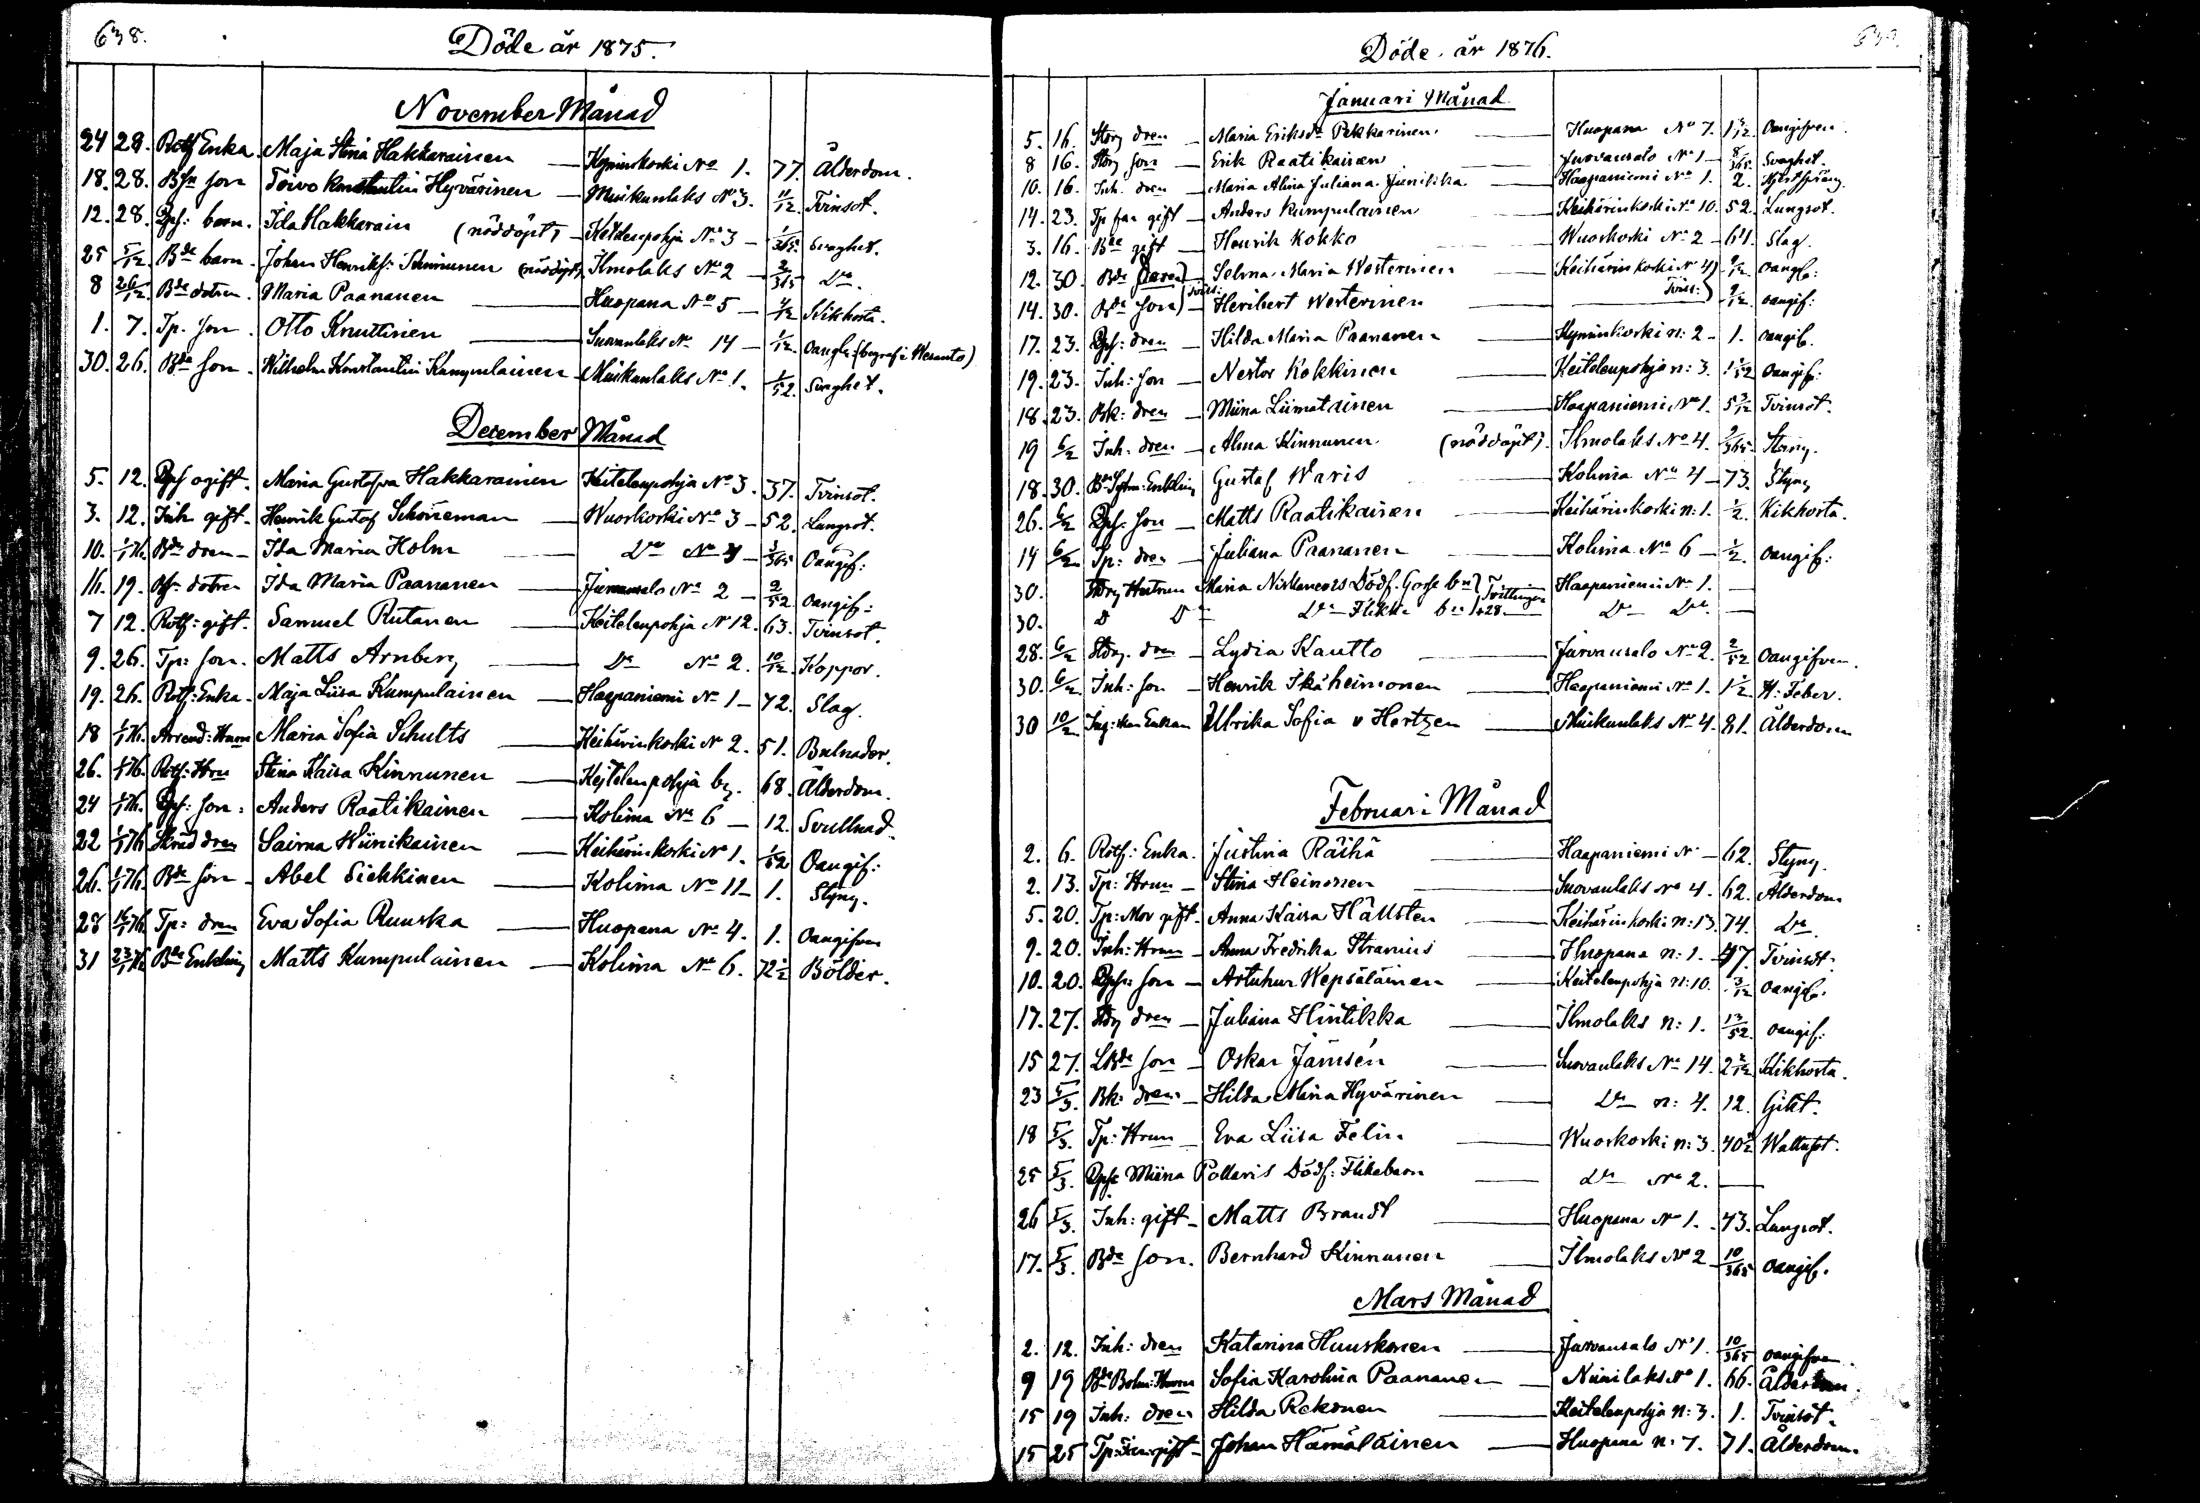 638.
Döde år 1875.
November Månad
24 28. Rotf Enka. Maja Stina Hakkarainen — Kyminkoski No 1. 77. Ålderdom.
18. 28. Bfn son Toivo Konstantin Hyvärinen — Muikunlaks No 3. 11/12 Tvinsot.
12. 28. Dpf: barn. Ida Hakkarain (nöddöpt) — Keitelenpohja No 3 — 1/365 svaghet.
25 5/12 Bde barn. Johan Henriks: (nöddöpt) Ilmolaks No 2 — 2/365 Do.
8 26/12 Bde dotren. Maria Paananen — Huopana No 5 — /12 Kikhosta.
1. 7. Tp. son. Otto Knuttinen — Suovanlaks No 14 — 1/12. oangif: (begraf: i Wesanto)
30. 26. Bde son. Wilhelm Konstantin Kumpulainen Muikunlaks No 1. 1/52. svaghet.
December Månad
5. 12. Dpf ogift. Maria Gustafva Hakkarainen Keitelenpohja No 3. 37. Tvinsot.
3. 12. Inh gift. Henrik Gustaf Schöneman — Wuoskoski No 3 — 52. Lungsot.
10. 1/1 76. Bde dren — Ida Maria Holm — Do No 4 — 1/365 Oangif:
16. 19. dotren Ida Maria Paananen — Jurvansalo No 2 — 2/52 oangif:
7 12. Rotf: gift. Samuel Rutanen — Keitelenpohja No 12. 63. Tvinsot.
9. 26. Tp: son. Matts Arnberg — Do No 2. 10/12 Koppor.
19. 26. Rotf: Enka. Maja Liisa Kumpulainen — Haapaniemi No 1 — 72. Slag.
18 1/1 76. Arrend: Hrun Maria Sofia Schults — Keihärinkoski No 2. 51. Bulnader.
26. 1/1 76. Rotf: Hru Stina Kaisa Kinnunen — Keitelenpohja by. 68. Ålderdom.
24 1/1 76. Dpf: son: Anders Raatikainen — Kolima No 6 — 12. Svullnad.
22 1/1 76 Skräd dren Saima Wiinikainen — Keihärinkoski No 1. 1/52 Oangif:
26. 1/1 76. Bde son — Abel Siekkinen — Kolima No 11 — 1. Styng.
28 16/1 76. Tp: dren Eva Sofia Ruuska — Huopana No 4. 1. oangifven
31 23/1 76 Bde Enkling Matts Kumpulainen — Kolima No 6. 72 1/2 Bölder.
Döde år 1876.
Januari Månad
5. 16. Storp dren — Maria Eriksdr Pekkarinen — Huopana No 7. 1 /12. oangifven.
8 16. Storp son — Erik Raatikainen — Jurvansalo No 1 — 8/365. Svaghet.
10. 16. Inh. dren — Maria Alina Juliana Juntikka Haapaniemi No 1. 2.
14. 23. Tp far gift — Anders Kumpulainen Keihärinkoski No 10. 52. Lungsot.
3. 16. Bde gift — Henrik Kokko — Wuoskoski No 2 — 64. Slag.
12. 30. Bde dren Selma Maria Westerinen — Keihärinkoski No 4 9/12 oangif:
14. 30. Bde son Heribert Westerinen — 9/12 oangif:
17. 23. Dpf: dren — Hilda Maria Paananen — Kyminkoski n: 2 — 1. oangif.
19. 23. Inh: son — Nestor Kokkinen — Keitelenpohja n: 3. 1 /52 oangif:
18. 23. Bk: dren — Miina Liimatainen — Haapaniemi No 1. 5 3/12 Tvinsot.
19 6/2 Inh. dren — Alma Kinnunen (nöddöpt). Ilmolaks No 4. /365 Styng.
18. 30. Bde Sytn: Enkling Gustaf Waris — Kolima No 4 — 73. Styng
26. 6/2 Dpf. son — Matts Raatikainen — Keihärinkoski n: 1. 1/2. Kikhosta.
14 6/2 Tp: dren — Juliana Paananen — Kolima No 6 — 1/2. oangif:
30. Storp Hustrun Maria Niskanens Dödf. Gosse bn Tvillingar Haapaniemi No 1. —
30. D Do Do Flicke bn 28. Do Do —
28. 6/2 Storp. dren — Lydia Kautto — Jurvansalo No 2. 2/52 oangifven.
30. 6/2 Inh: son — Henrik Ikäheimonen — Haapaniemi No 1. 1 1/2. N: Feber.
30 10/2 Ing: Enkan Ulrika Sofia v Hertzen — Muikunlaks No 4. 81. Ålderdom
Februari Månad
2. 6. Rotf: Enka. Justina Räihä — Haapaniemi No — 62. Styng.
2. 13. Tp: Hrun — Stina Heinonen — Suovanlaks No 4. 62. Ålderdom
5. 20. Tp: Mor gift. Anna Kaisa Hällsten — Keihärinkoski n: 13. 74. Do
9. 20. Inh: Hrun — Anna Fredrika Stranius — Huopana n: 1. 47. Tvinsot.
10. 20. Dpf: son — Arthur Wepsäläinen — Keitelenpohja n: 10. 3/12 oangif.
17. 27. Storp dren — Juliana Hintikka — Ilmolaks n: 1. 13/52. oangif:
15 27. LBde son — Oskar Jämsén — Suovanlaks No 14. 2 2/12 Kikhosta.
23 5/3. Bk: dren — Hilda Miina Hyvärinen — Do n: 4. 12. Gikt.
18 5/3. Tp: Hrun — Eva Liisa Felin — Wuoskoski n: 3. 40 1/2 Wattusot.
25 5/3. Dpfs Miina Pollaris Dödf: Flickebarn — Do No 2. —
26 5/3. Inh: gift — Matts Brandt — Huopana No 1. 43. Lungsot.
17. 5/3. Bde son. Bernhard Kinnunen — Ilmolaks No 2 10/365 oangif.
Mars Månad
2. 12. Inh: dren Katarina Huuskonen — Jurvansalo No 1. 10/365 oangifven.
9 19 Bde Bolm: Hrun Sofia Karolina Paananen — Niinilaks No 1. 66. Ålderdom.
15 19 Inh: dren Hilda Rekonen — Keitelenpohja n: 3. 1. Tvinsot.
15 25 Tp: Far: gift — Johan Hämäläinen — Huopana n: 7. 71. Ålderdom.